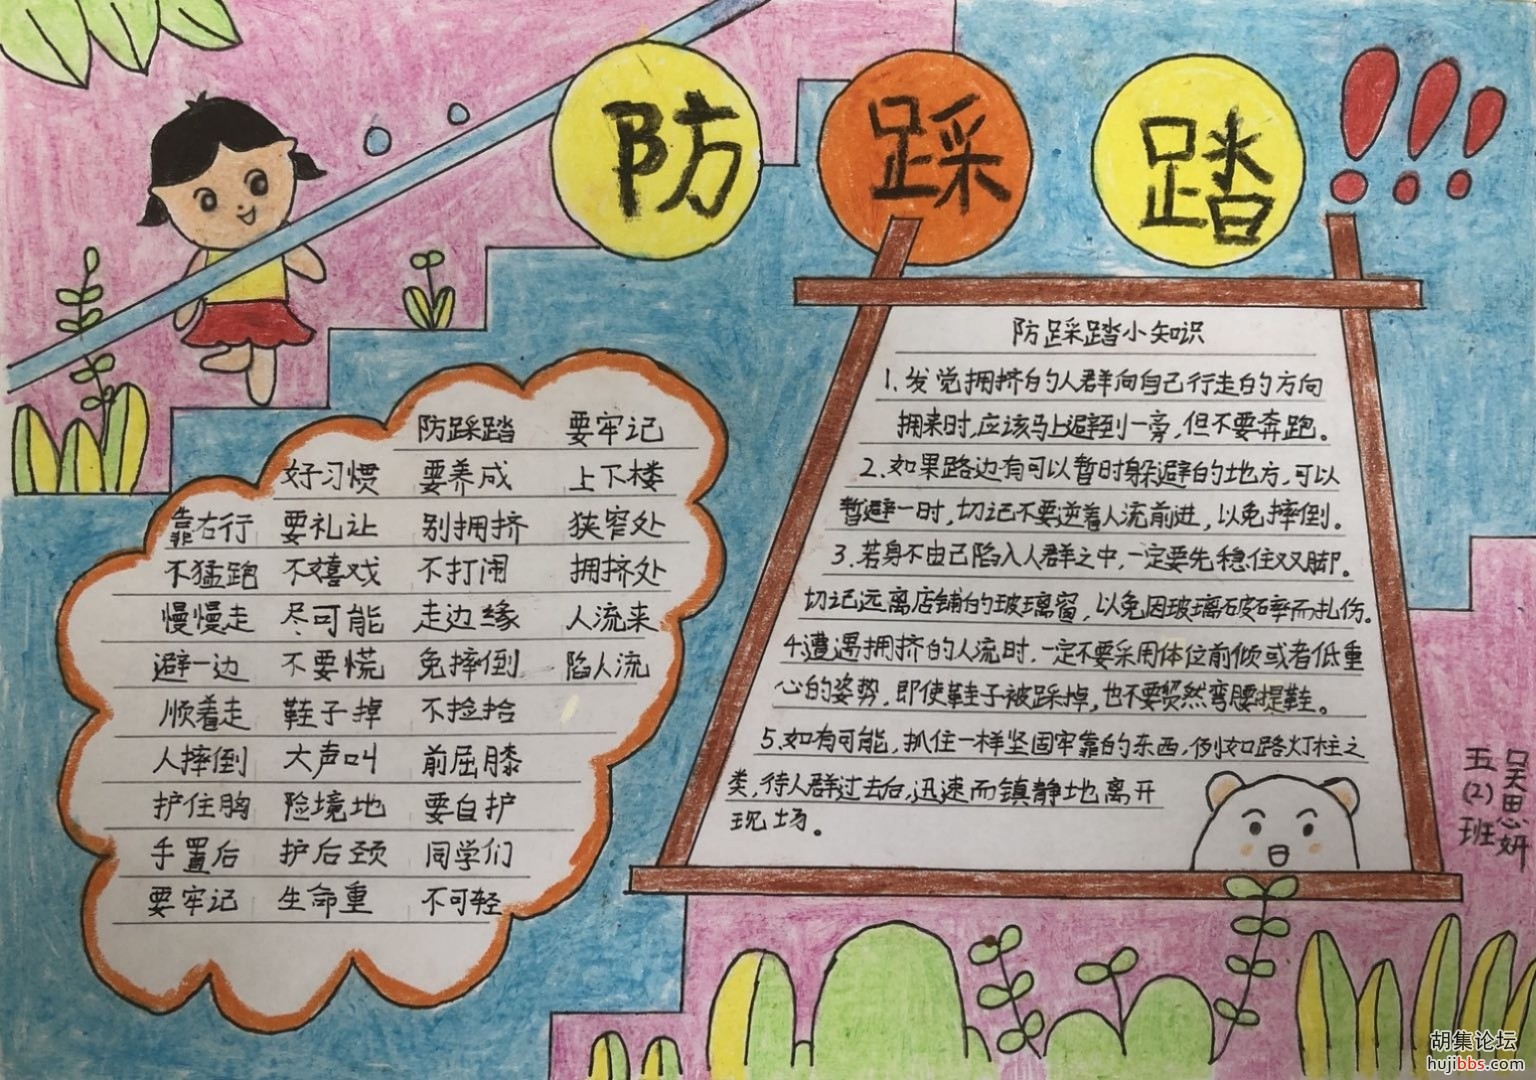 防踩踏!!!
防踩踏 要牢记
好习惯 要养成 上下楼
靠右行 要礼让 别拥挤 狭窄处
不猛跑 不嬉戏 不打闹 拥挤处
慢慢走 尽可能 走边缘 人流来
避一边 不要慌 免摔倒 陷人流
顺着走 鞋子掉 不捡拾
人摔倒 大声叫 前屈膝
护住胸 险境地 要自护
手置后 护后颈 同学们
要牢记 生命重 不可轻
防踩踏小知识
1.发觉拥挤的人群向自己行走的方向
拥来时,应该马上避到一旁,但不要奔跑。
2.如果路边有可以暂时躲避的地方,可以
暂避一时,切记不要逆着人流前进,以免摔倒。
3.若身不由己陷入人群之中,一定要先稳住双脚。
切记远离店铺的玻璃窗,以免因玻璃破碎而扎伤。
4.遭遇拥挤的人流时,一定不要采用体位前倾或者低重
心的姿势,即使鞋子被踩掉,也不要贸然弯腰提鞋。
5.如有可能,抓住一样坚固牢靠的东西,例如路灯柱之
类,待人群过去后,迅速而镇静地离开
现场。
五(2)班
吴思妍
胡集论坛
hujibbs.com